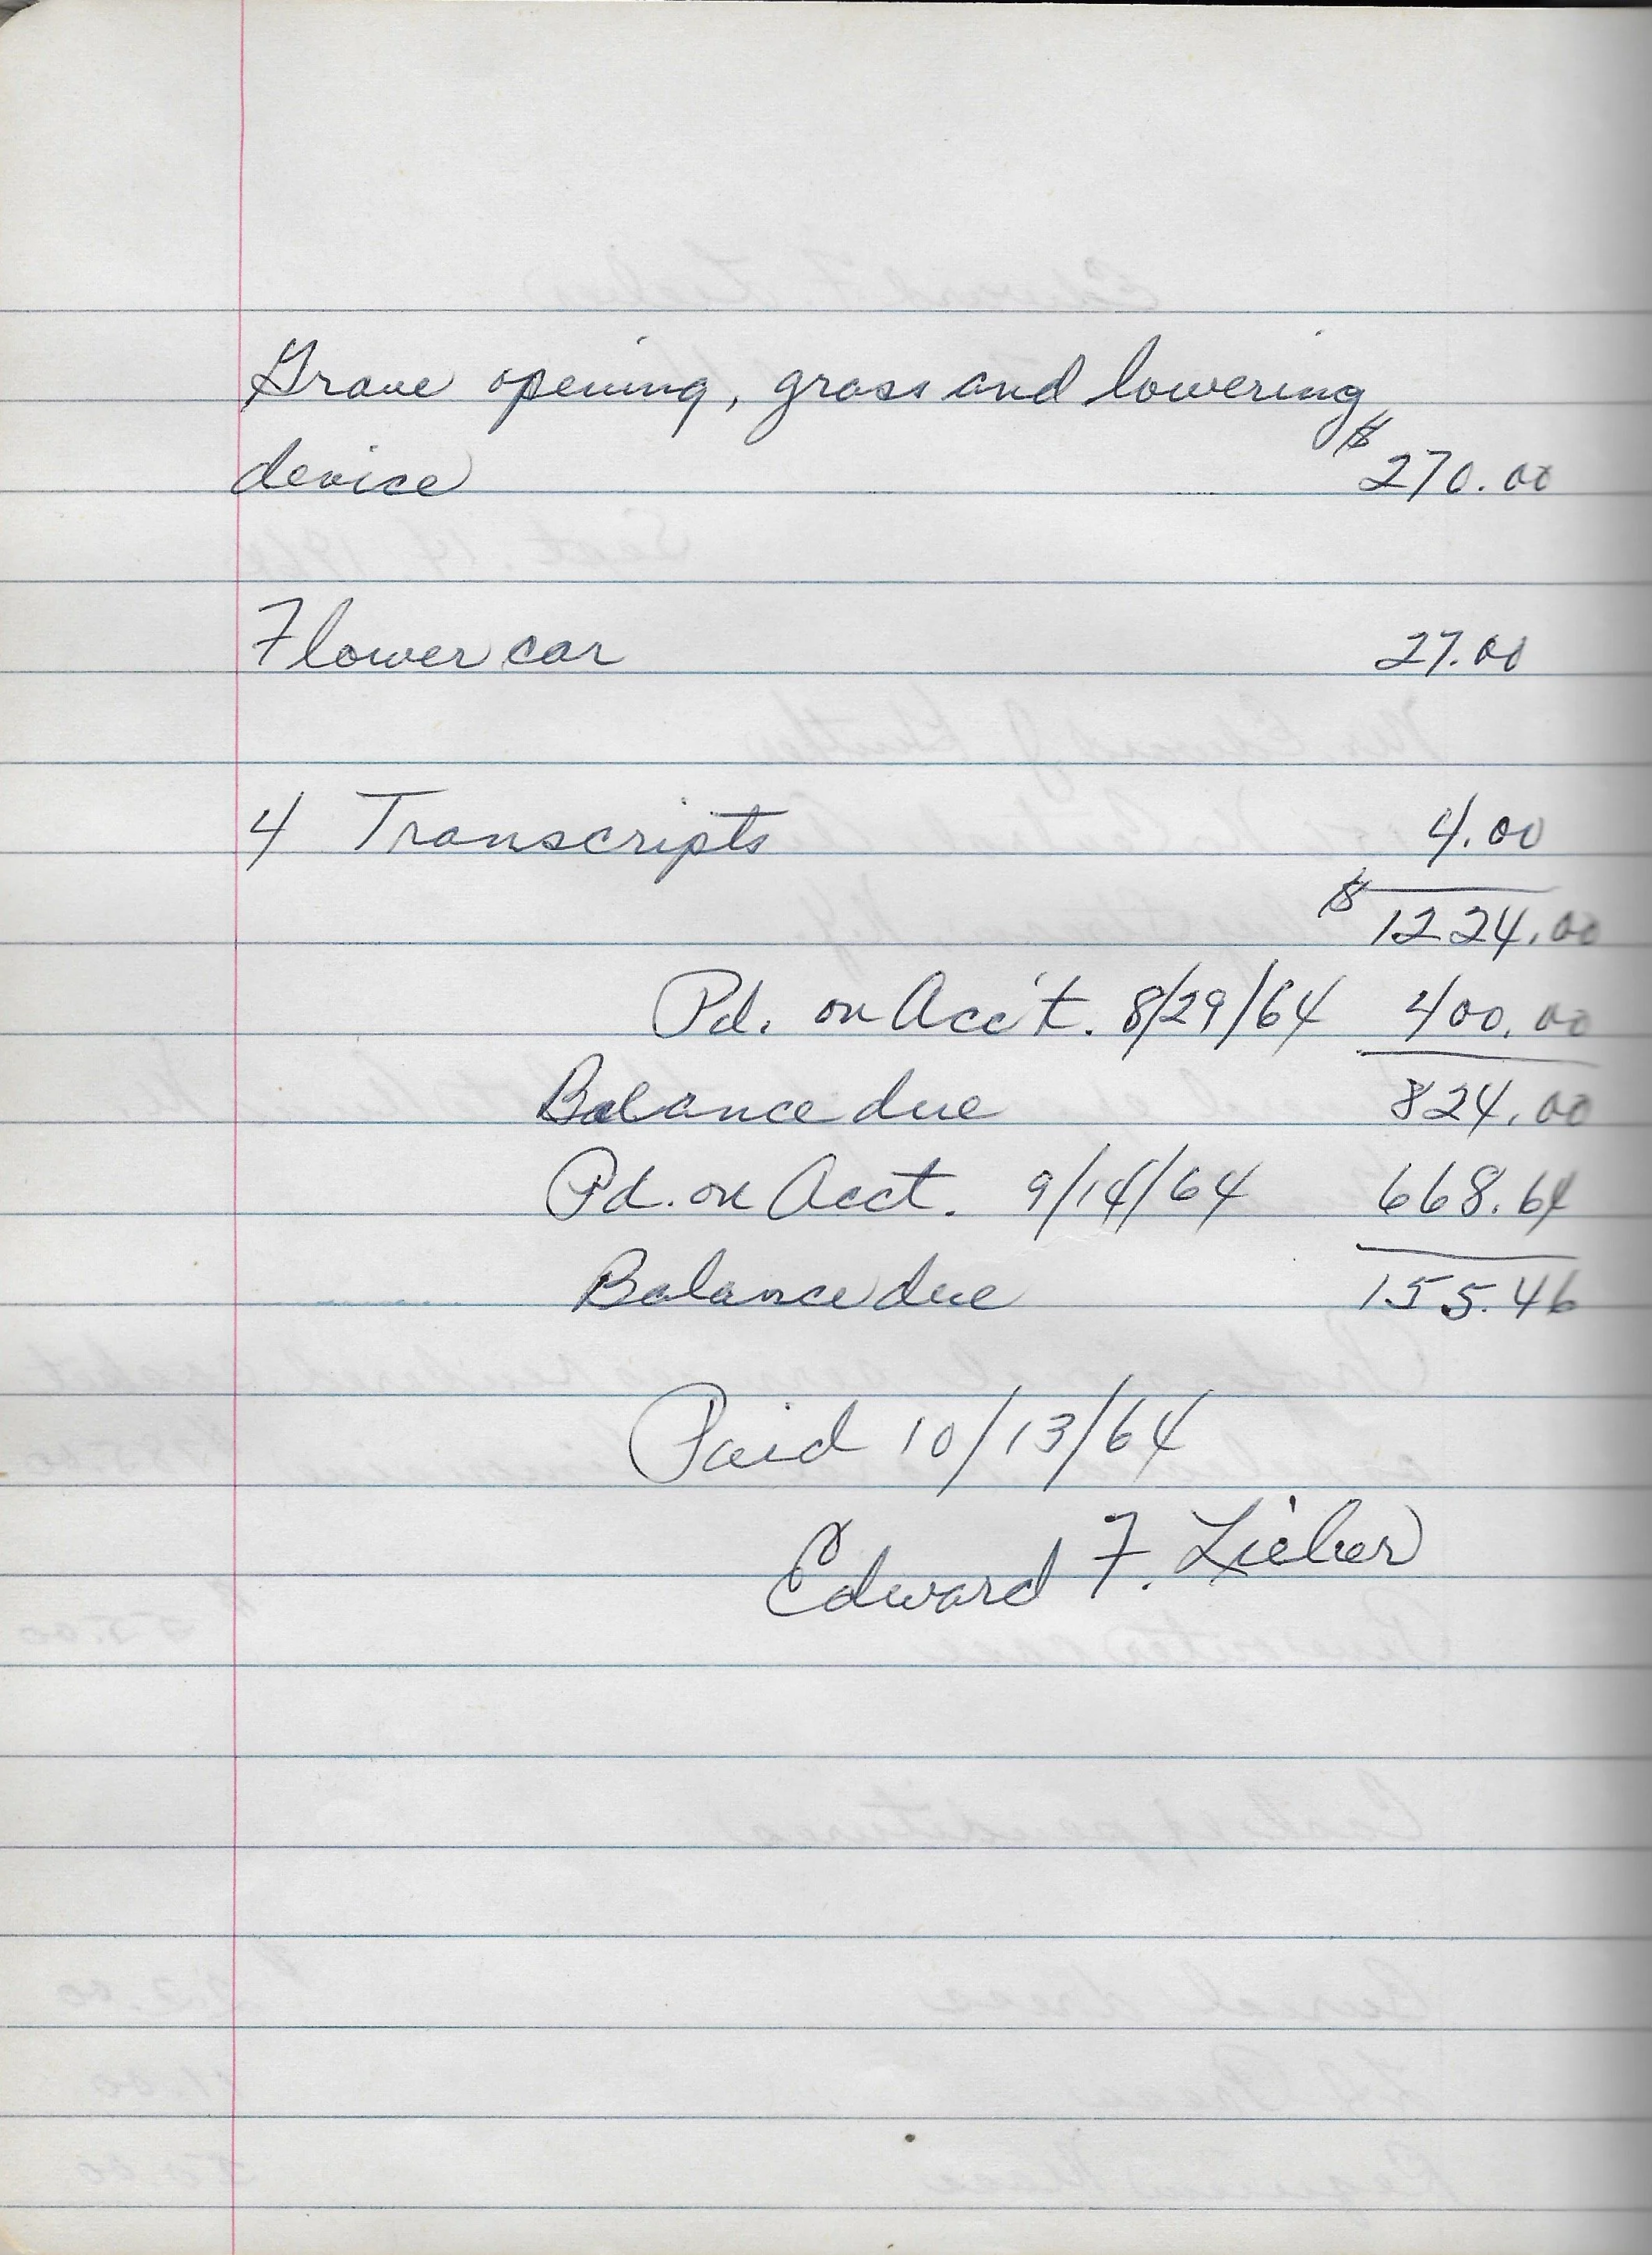 Grave opening, grass and lowering
device $270.00
Flower car 27.00
4 Transcripts 4.00
$1224.00
Pd. on Acc't. 8/29/64 400.00
Balance due 824.00
Pd. on Acct. 9/14/64 668.64
Balance due 155.46
Paid 10/13/64
Edward F. Lieber